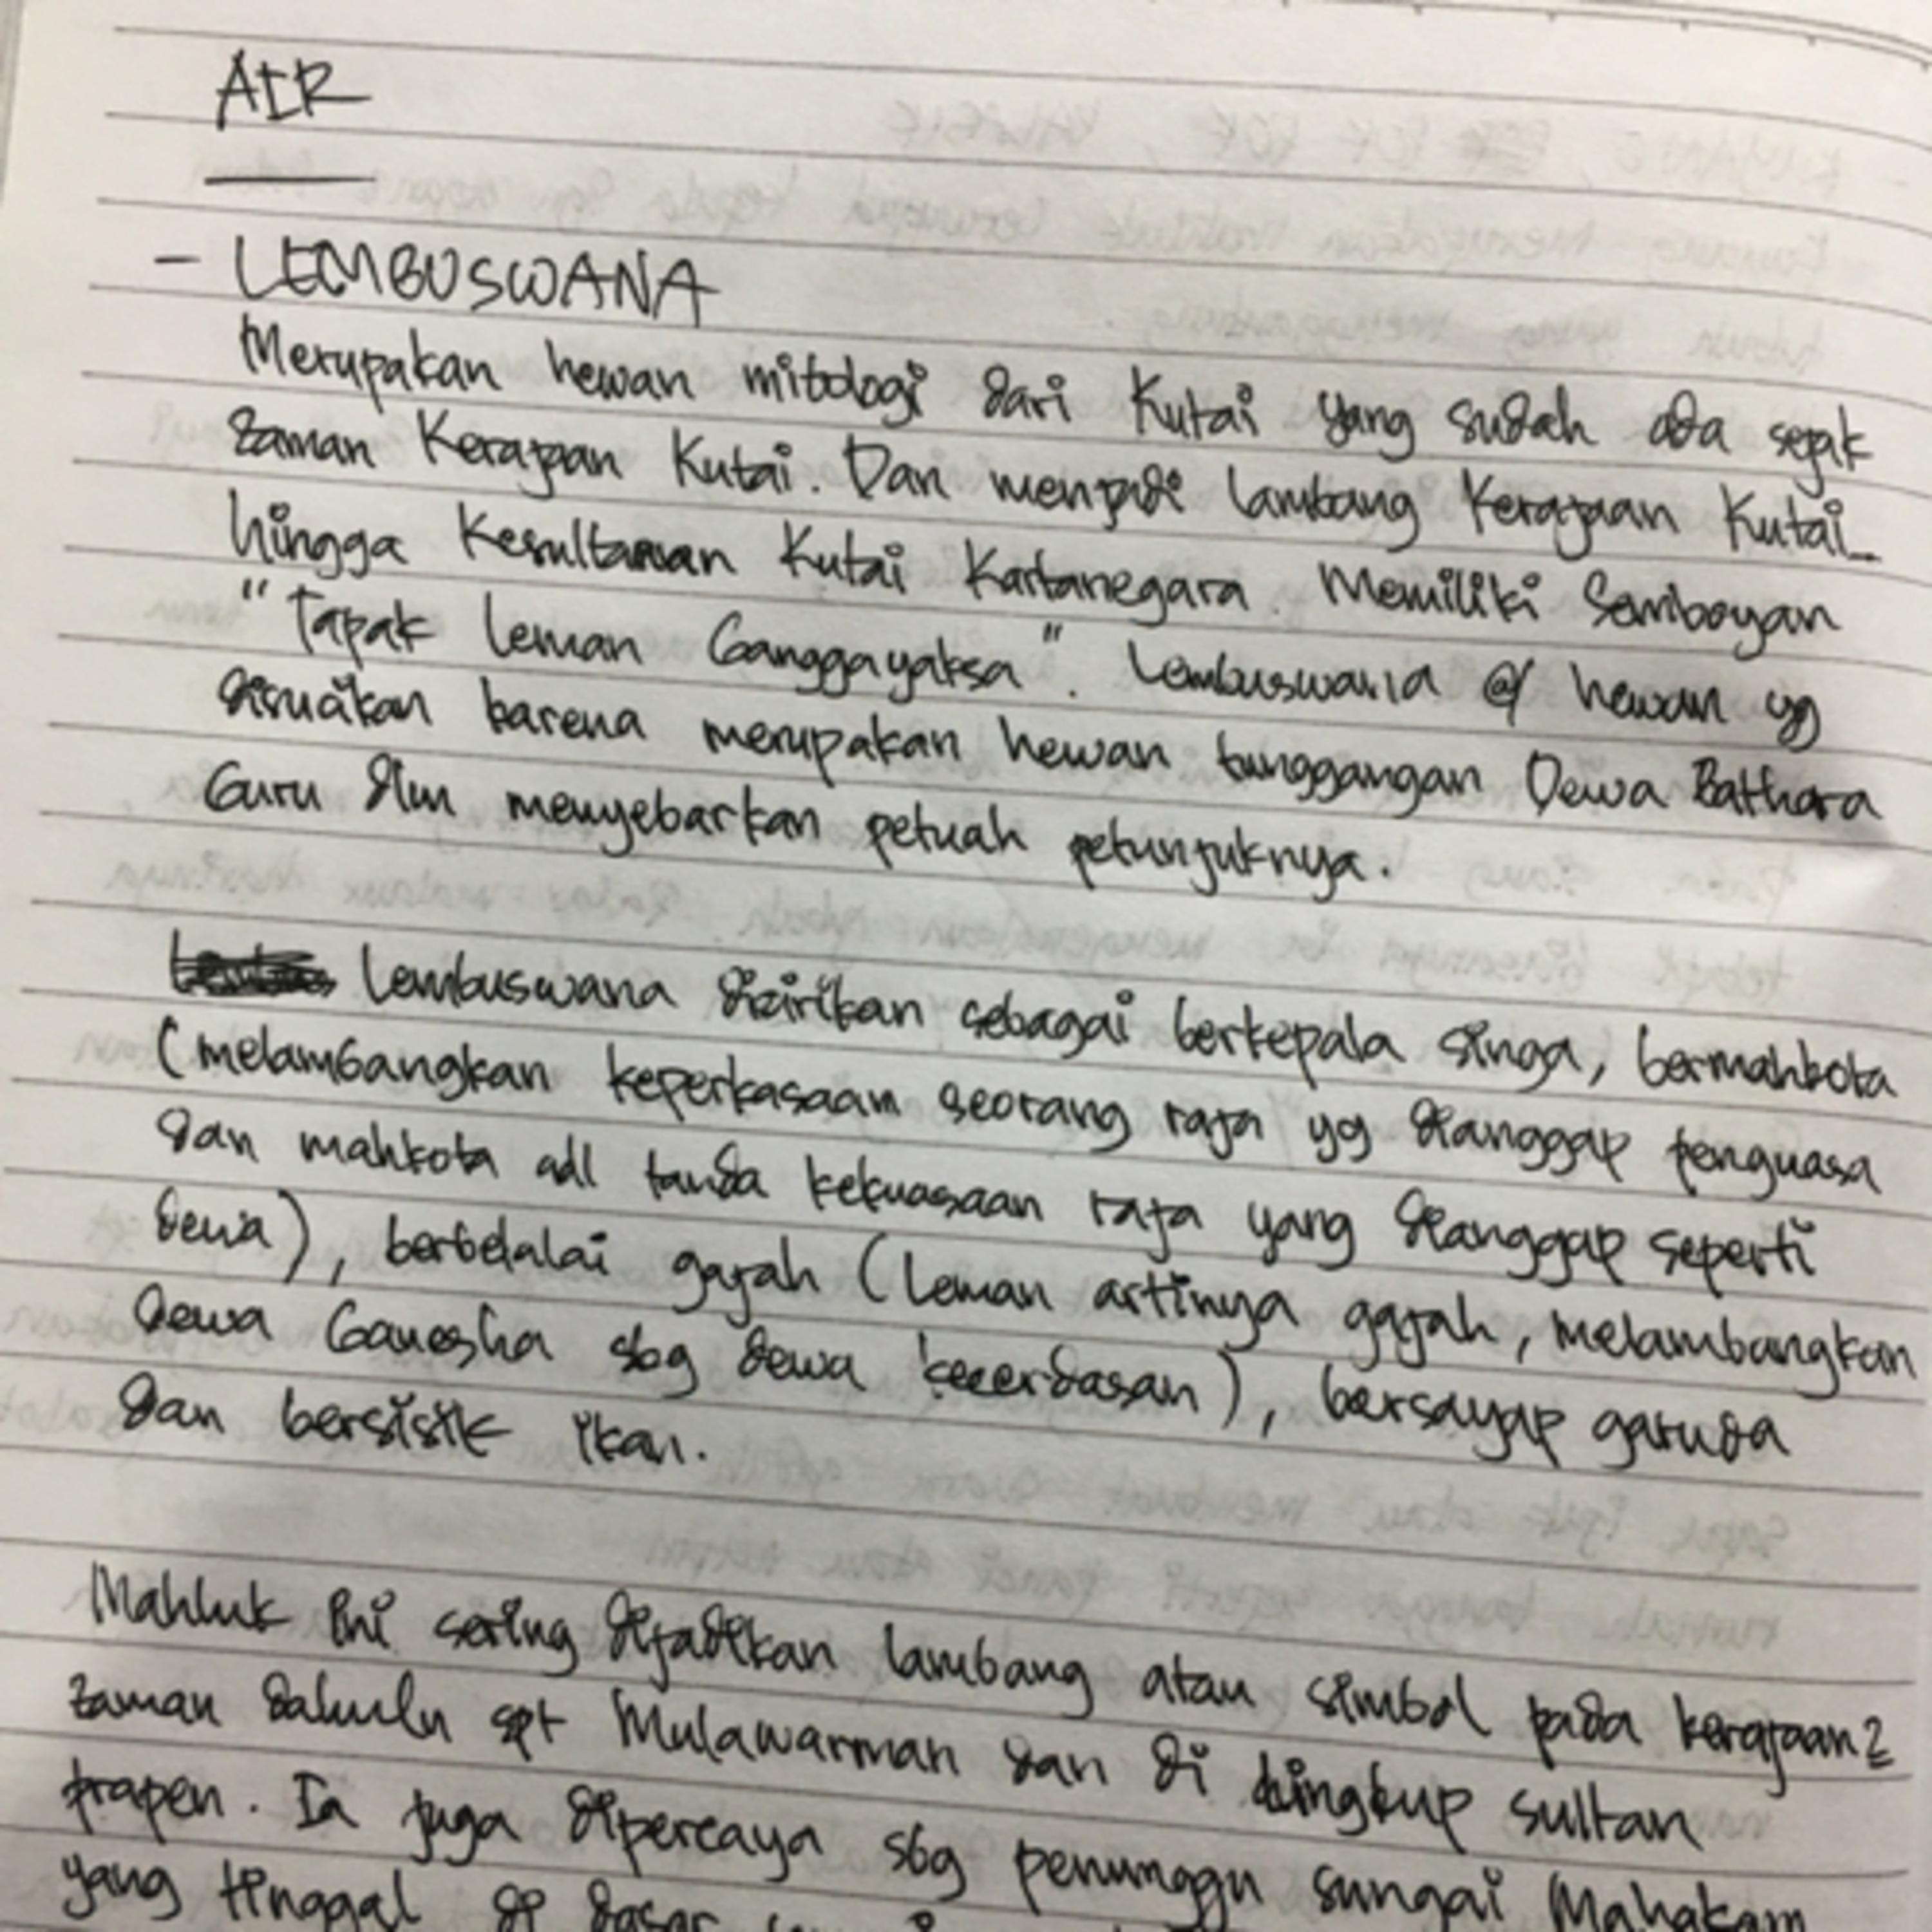 AIR
- LEMBUSWANA
Merupakan hewan mitologi dari Kutai yang sudah ada sejak
zaman Kerajaan Kutai. Dan menjadi lambang Kerajaan Kutai
hingga Kesultanan Kutai Kartanegara. Memiliki Semboyan
"Tapak Leman Ganggayaksa". Lembuswana @/ hewan yg
disucikan karena merupakan hewan tunggangan Dewa Bathara
Guru dlm menyebarkan petuah petunjuknya.
Lembuswana dicirikan sebagai berkepala singa, bermahkota
(melambangkan keperkasaan seorang raja yg dianggap penguasa
dan mahkota adl tanda kekuasaan raja yang dianggap seperti
dewa), berbelalai gajah (Leman artinya gajah, melambangkan
Dewa Ganesha sbg dewa kecerdasan), bersayap garuda
dan bersisik ikan.
Mahluk ini sering dijadikan lambang atau simbol pada kerajaan2
zaman dahulu spt Mulawarman dan di lingkup sultan
prapen. Ia juga dipercaya sbg penunggu sungai Mahakam
yang tinggal di dasar